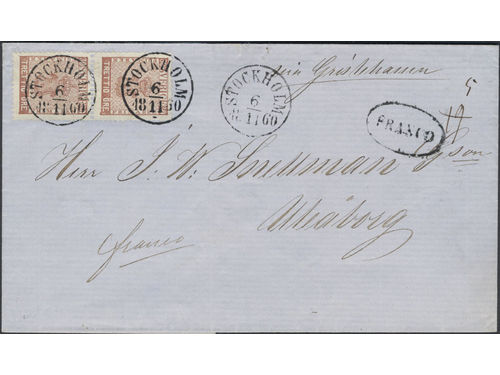 TRETTIO ÖRE TRETTIO ÖRE
STOCKHOLM 6/11 1860
STOCKHOLM 6/11 1860
STOCKHOLM 6/11 1860
via Grislehamn
FRANCO
Herr J. W. Snellman
Uleåborg
franco